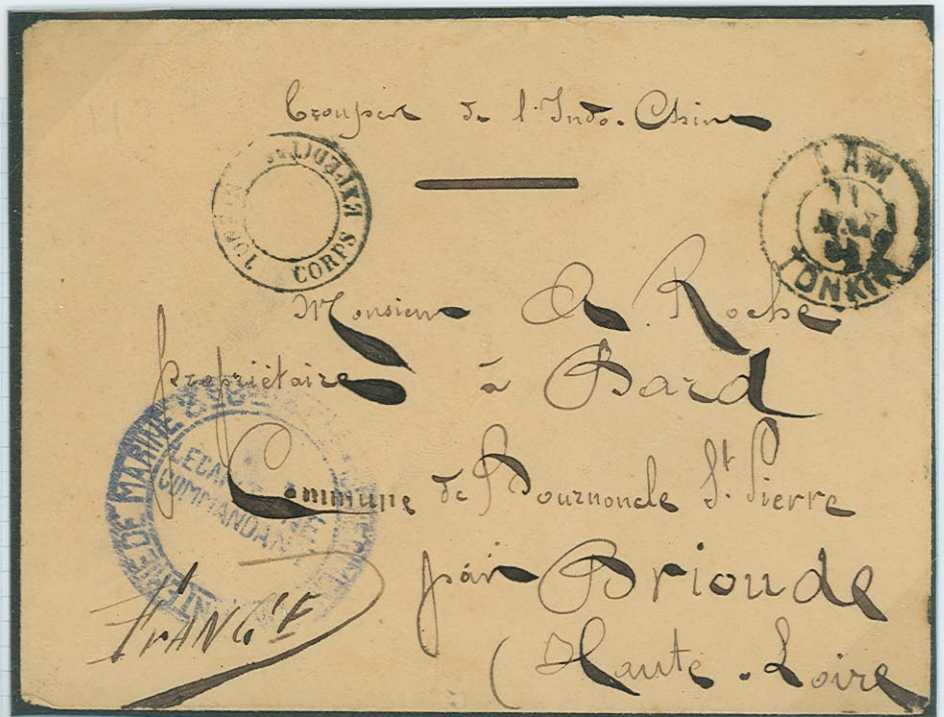 Troupes de l'Indo-Chine
CORPS EXPEDIT
LAM
11
TONKIN
Monsieur A. Roche
propriétaire à Bard
Commune de Bournoncle St. Pierre
par Brioude
(Haute-Loire
FRANCE
DE MARINE
LE CAPITAINE
COMMANDANT